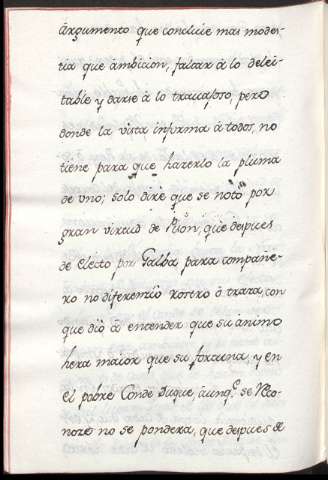 argumento que concluie mas modes-
tia que ambicion, faltar â lo delei-
table y darse â lo trauajoso, pero
donde la vista informa â todos, no
tiene para que hazerlo la pluma
de vno; solo diré que se notó por
gran virtud de Pisón, que despues
de electo por Galba para compañe-
ro no diferenció rostro ó trato, con
que dió â entender que su ànimo
hera maior que su fortuna, y en
el pobre Conde Duque âunq.e se reco-
noze no se pondera, que despues de